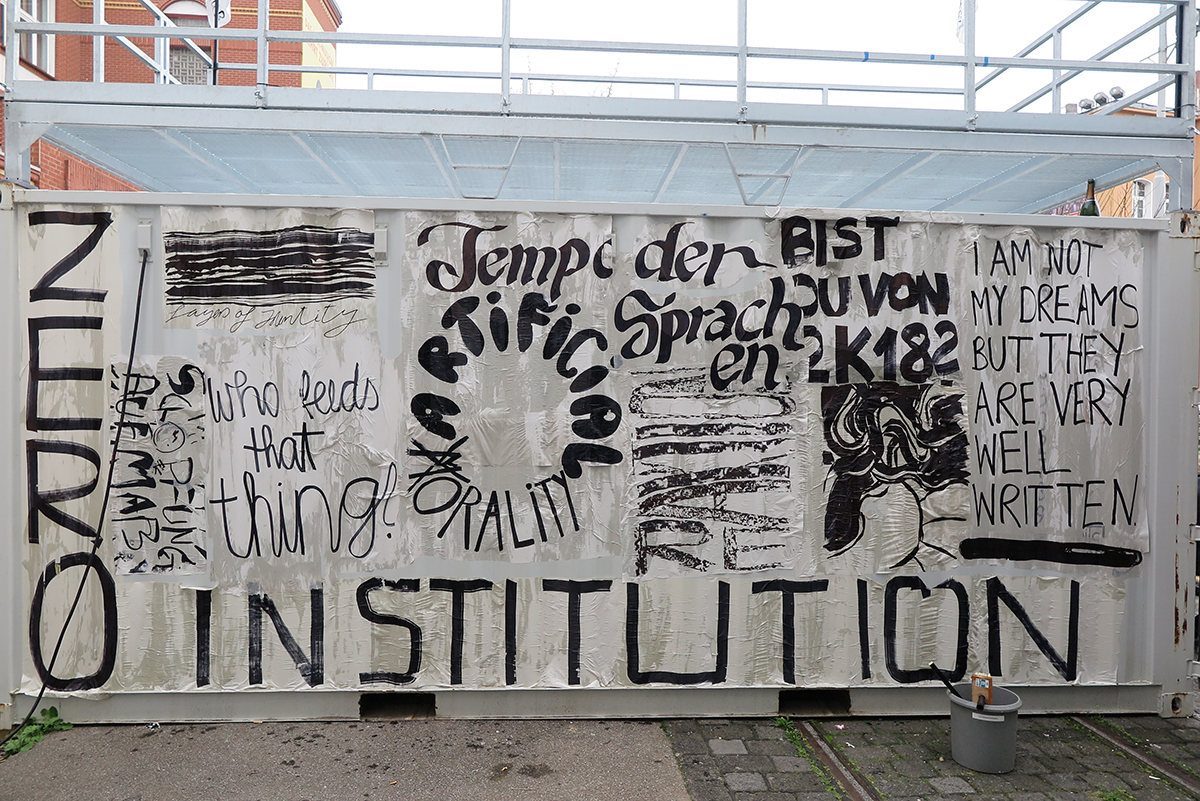 ZERO
Layers of Identity
Who feeds
that
thing?!
Tempo der
Sprach
en
ARTIFICIAL
MORALITY
BIST
DU VON
2K182
I AM NOT
MY DREAMS
BUT THEY
ARE VERY
WELL
WRITTEN.
INSTITUTION